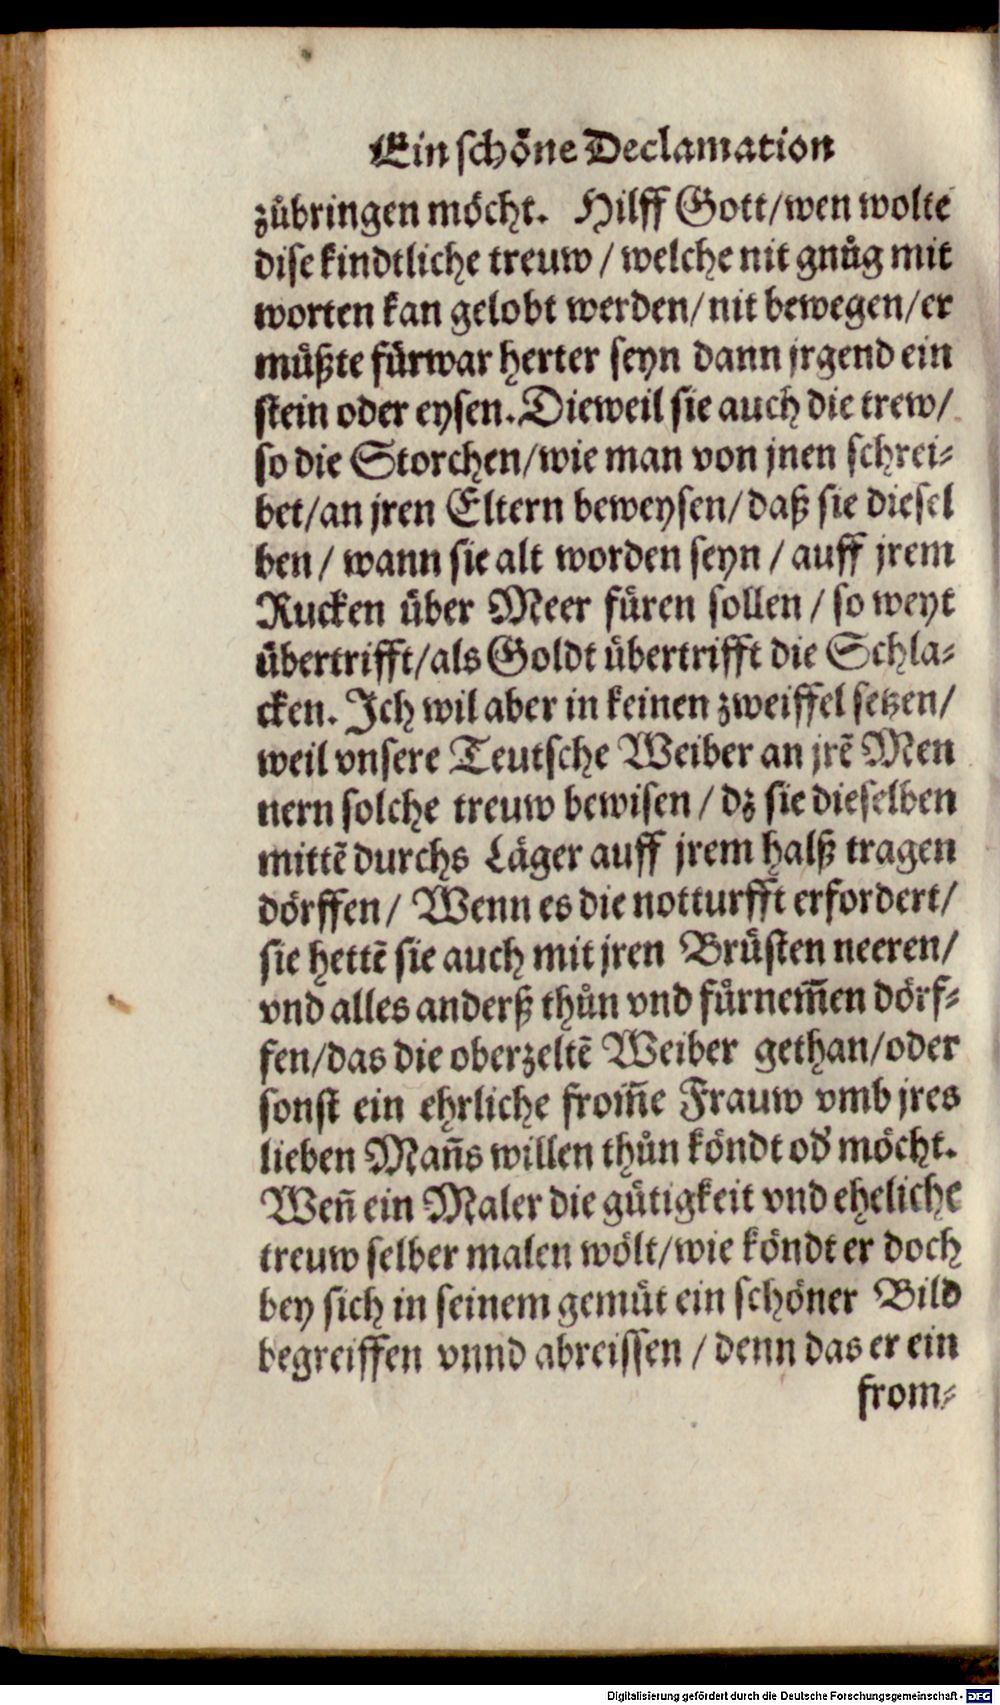 Ein schöne Declamation
zůbringen möcht. Hilff Gott/wen wolte
dise kindtliche treuw / welche nit gnůg mit
worten kan gelobt werden/ nit bewegen/er
můßte fürwar herter seyn dann jrgend ein
stein oder eysen. Dieweil sie auch die trew/
so die Storchen/wie man von jnen schrei⸗
bet/an jren Eltern beweysen/ daß sie diesel
ben / wann sie alt worden seyn / auff jrem
Rucken über Meer füren sollen / so weyt
übertrifft/als Goldt übertrifft die Schla⸗
cken. Ich wil aber in keinen zweiffel setzen/
weil vnsere Teutsche Weiber an jrẽ Men
nern solche treuw bewisen / dz sie dieselben
mittẽ durchs Läger auff jrem halß tragen
dörffen/ Wenn es die notturfft erfordert/
sie hettẽ sie auch mit jren Brüsten neeren/
vnd alles anderß thůn vnd fürnem̃en dörf⸗
fen/das die oberzeltẽ Weiber gethan/oder
sonst ein ehrliche from̃e Frauw vmb jres
lieben Mañs willen thůn köndt od' möcht.
Weñ ein Maler die gütigkeit vnd eheliche
treuw selber malen wölt/wie köndt er doch
bey sich in seinem gemüt ein schöner Bild
begreiffen vnnd abreissen / denn das er ein
from⸗
Digitalisierung gefördert durch die Deutsche Forschungsgemeinschaft - DFG